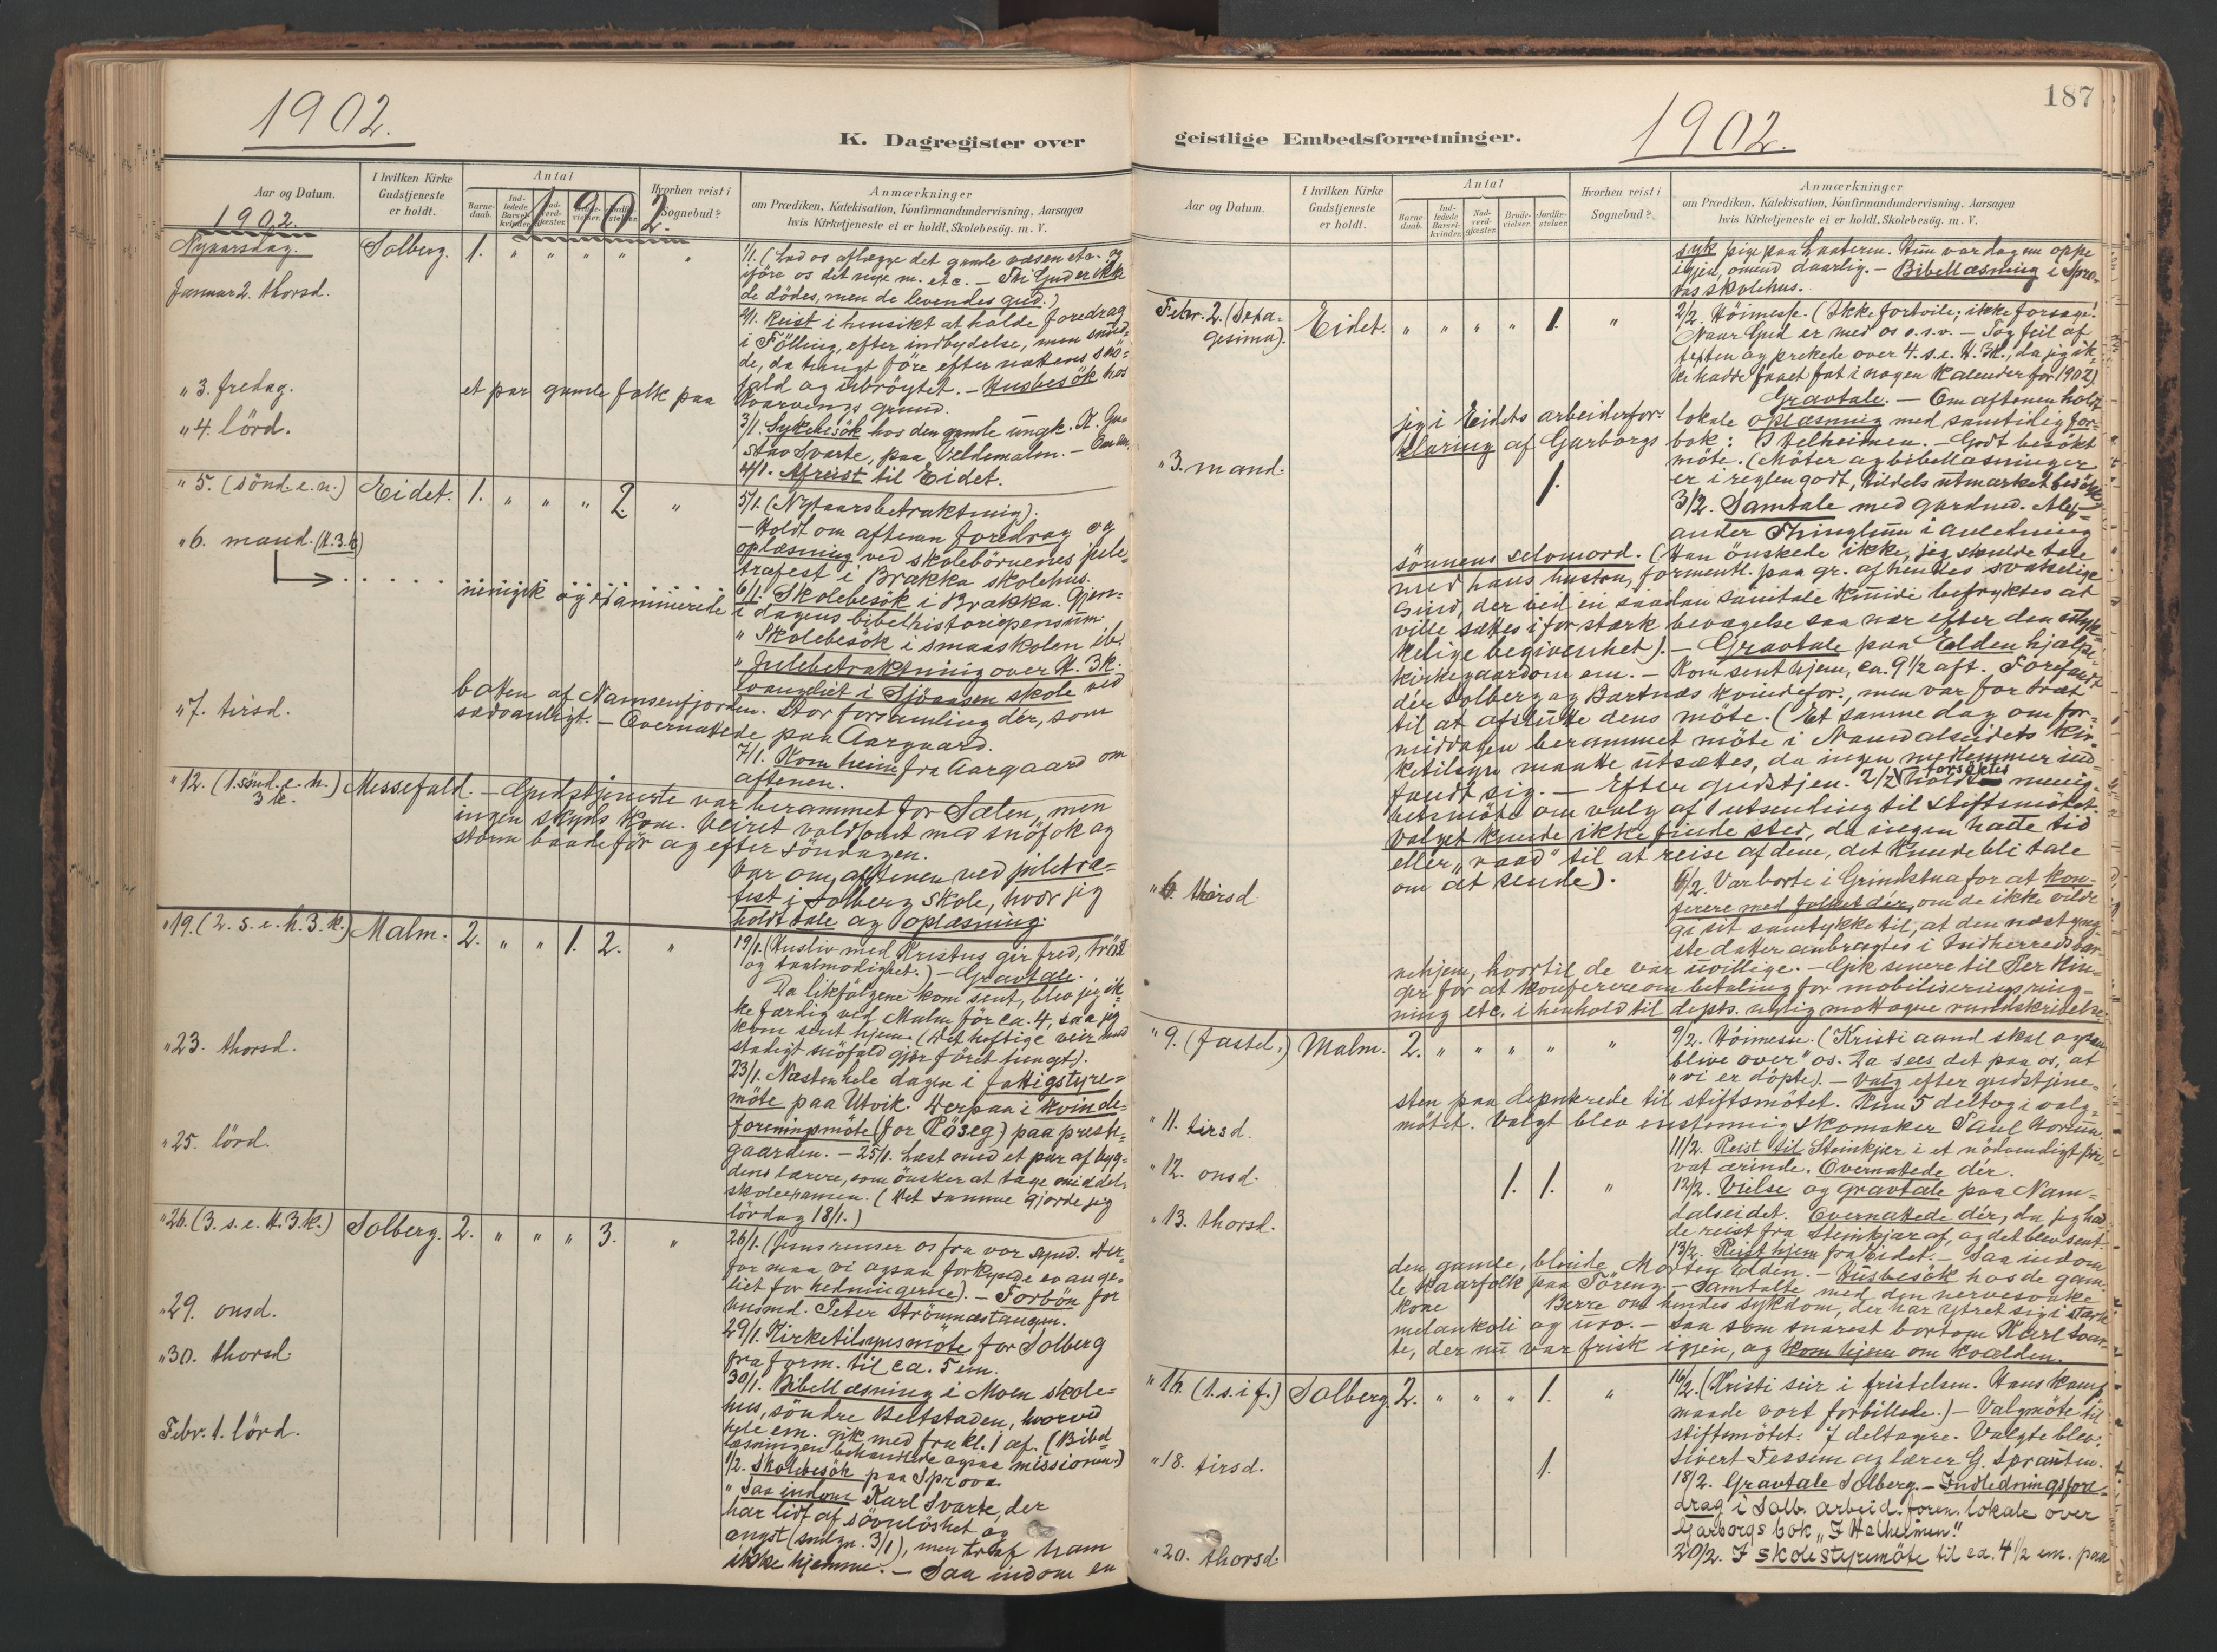 1902.
K. Dagregister over
Aar og Datum.
I hvilken Kirke Gudstjeneste er holdt.
Antal
Barne-daab.
Ind-ledede Barsel-kvinder.
Hvorhen reist i Sognebud?
Anmærkninger
om Prædiken, Katekisation, Konfirmandundervisning, Aarsagen
hvis Kirketjeneste ei er holdt, Skolebesøg. m. V.
1902.
1902.
Nyaarsdag. Solberg. 1. " " " " "
1/1. (Lad os aflægge det gamle væsen etc. og
iföre os det nye m. etc. — Thi Gud er ikke
de dödes, men de levendes gud.)
Januar 2. thorsd.
2/1. Reist i hensikt at holde foredrag
i Fölling, efter indbydelse, men snud-
de, da tungt före efter nattens snö-
fald og ubröytet. — Husbesök hos
et par gamle folk paa Kvarvings grund.
" 3. fredag.
3/1. Sykebesök hos den gamle ungk. N. Gu-
stav Svarte, paa Veldemalm. —
" 4. lörd.
4/1. Afreist til Eidet.
" 5. (sönd. e. n.) Eidet. 1. " " " 2. "
5/1. (Nytaarsbetraktning).
— Holdt om aftenen foredrag og
oplæsning ved skolebörnenes jule-
træfest i Brækka skolehus.
" 6. mand. (H.3.k)
6/1. Skolebesök i Brækka. Gjen-
nemgik og examinerede i dagens bibelhistoriepensum.
" Skolebesök i smaaskolen ib.
" Julebetraktning over H. 3 k.
evangeliet i Sjöaasen skole ved
botten af Namsenfjorden. Stor forsamling dér, som
sedvanligt. — Overnattede paa Aargaard.
" 7. tirsd.
7/1. Kom heim fra Aargaard om
aftenen.
" 12. (1. sönd. e. h. 3 k.) Messefald. — Gudstjeneste var berammet for Sælen, men
ingen skyds kom. Veiret voldsomt med snöfok og
storm baade för og efter söndagen.
Var om aftenen ved juletræ-
fest i Solberg skole, hvor jeg
holdt tale og oplæsning.
" 19. (2. s. e. h. 3. k.) Malm. 2. " " 1. 2. "
19/1. (Husliv med Kristus gir fred, tröst
og taalmodighet.) — Gravtale.
Da likfölgene kom sent, blev jeg ik-
ke færdig ved Malm för ca. 4, saa jeg
kom sent hjem. (Det heftige veir med
stadigt snöfald gjör föret tungt).
" 23. thorsd.
23/1. Næsten hele dagen i fattigstyre-
möte paa Utvik. Derpaa i kvinde-
foreningsmöte (for Röseg) paa preste-
gaarden. — 25/1. Læst med et par af byg-
dens lærere, som önsker at tage middel-
skoleexamen. (Det samme gjorde jeg
lördag 18/1.)
" 25. lörd.
" 26. (3. s. e. H. 3. k.) Solberg. 2. " " " 3. "
26/1. (Jesus renser os fra vor synd. Der-
for maa vi ogsaa forkynde evange-
liet for hedningerne). — Forbön for
husmd. Peter Strömnæstangen.
" 29. onsd.
29/1. Kirketilsynsmöte for Solberg
fra form. til ca. 5 em.
" 30. thorsd.
30/1. Bibellæsning i Moen skole-
hus, söndre Beitstaden, hvorved
hele em. gik med fra kl. 1 af. (Bibel-
læsningen behandlede ogsaa missionen.)
Febr. 1. lörd.
1/2. Skolebesök paa Sprova.
" Saa indom Karl Svarte, der
har lidt af sövnlöshet og
angst (smlgn. 3/1), men traf ham
ikke hjemme. — Saa indom en
187
geistlige Embedsforretninger.
1902.
Aar og Datum.
I hvilken Kirke Gudstjeneste er holdt.
Antal
Barne-daab.
Ind-ledede Barsel-kvinder.
Nad-verd-gjæster.
Brude-vielser.
Jordfæ-stelser.
Hvorhen reist i Sognebud?
Anmærkninger
om Prædiken, Katekisation, Konfirmandundervisning, Aarsagen
hvis Kirketjeneste ei er holdt, Skolebesög. m. V.
syk pige paa Laateren. Hun var dog nu oppe
igjen, omend daarlig. — Bibellæsning i Spro-
vas skolehus.
Febr. 2. (Sexa-gesima). Eidet. " " " " 1. "
2/2. Höimesse. (Ikke fortvile; ikke forsage!
Naar Gud er med os o.s.v. — Tog feil af
texten og prekede over 4. s. e. H. 3k., da jeg ik-
ke hadde faaet fat i nogen kalender for 1902).
Gravtale. — Om aftenen holdt
jeg i Eidets arbeiderfor. lokale oplæsning med samtidig for-
klaring af Garborgs bok: I Helheimen. — Godt besökt
möte. (Möter og bibellæsninger
er i reglen godt, tildels utmærket besökt)
" 3. mand. 1.
3/2. Samtale med gardmd. Alex-
ander Thinglum i anledning
sönnens selvmord. (Han önskede ikke, jeg skulde tale
med hans hustru, formentl. paa gr. af hendes svakelige
sind, der ved en saadan samtale kunde befryktes at
ville sættes i for stærk bevægelse saa nær efter den ulyk-
kelige begivenhet). — Gravtale paa Elden hjælpe-
kirkegaard om em. — Kom sent hjem, ca. 9 1/2 aft. Forefandt
dér Solberg og Bartnæs kvindefor., men var for træt
til at afslutte dens möte. (Et samme dag om for-
middagen berammet möte i Namdalseidets kir-
ketilsyn maatte utsættes, da ingen medlemmer ind-
fandt sig. — Efter gudstjen. 2/2 forsøktes menig-
hetsmöte om valg af 1 utsending til stiftsmötet.
Valget kunde ikke finde sted, da ingen hadde tid
eller "raad" til at reise af dem, det kunde bli tale
om at sende).
" 6. thorsd.
6/2. Var borte i Grindstua for at kon-
ferere med folket dér, om de ikke vilde
gi sit samtykke til, at den næstyng-
ste datter anbragtes i Indherreds bar-
nehjem, hvortil de var uvillige. — Gik senere til Per Hin-
ger for at konferere om betaling for mobiliseringsring-
ning etc. i henhold til depts. nylig mottagne rundskrivelse.
" 9. (fastel.) Malm. 2. " " " " "
9/2. Höimesse. (Kristi aand skal ogsaa
"blive over" os. Da sees det paa os, at
"vi er döpte). — Valg efter gudstjene-
sten paa deputerede til stiftsmötet. Kun 5 deltog i valg-
mötet. Valgt blev enstemmig skomaker Paul Horum.
" 11. tirsd.
11/2. Reist til Steinkjær i et nödvendigt pri-
vat ærinde. Overnattede dér.
" 12. onsd. 1. 1. "
12/2. Vielse og gravtale paa Nam-
dalseidet. Overnattede dér, da jeg had-
de reist fra Steinkjær af, og det blev sent.
" 13. thorsd.
13/2. Reist hjem fra Eidet. — Saa indom
den gamle, blinde Morten Elden. — Husbesök hos de gam-
le kaarfolk paa Föreng. — Samtalte med den nervesvake
kone Berre om hendes sykdom, der har ytret sig i stærk
melankoli og uro. — Saa som snarest bortom Karl Svar-
te, der nu var frisk igjen, og kom hjem om kvælden.
" 16. (1. s. i f.) Solberg. 2. " " " 1. "
16/2. (Kristi seir i fristelsen. Hans kamp-
maade vort forbillede.) — Valgmöte til
stiftsmötet. 7 deltagere. Valgte blev:
Sivert Fessem og lærer G. Sprauten.
" 18. tirsd. 1.
18/2. Gravtale Solberg. — Indledningsfore-
drag i Solb. arbeid. foren. lokale over
Garborgs bok "I Helheimen".
" 20. thorsd.
20/2. I skolestyremöte til ca. 4 1/2 em. paa